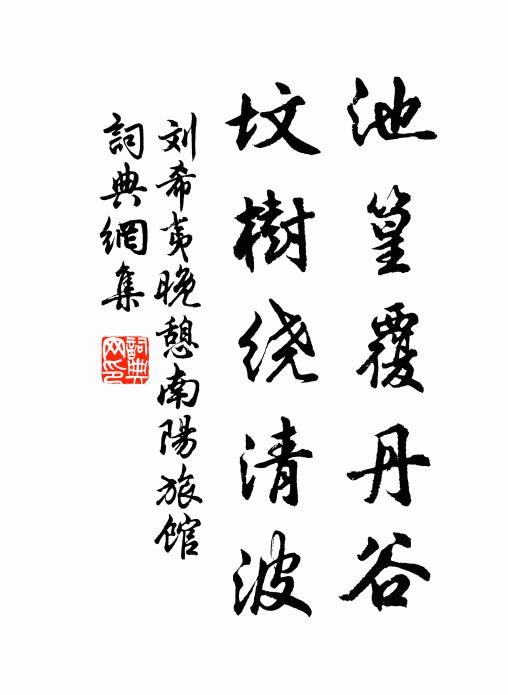 池篁覆丹谷
坟樹绕清波
刘希夷晚憩南陽旅馆
詞典網集
詞典网印